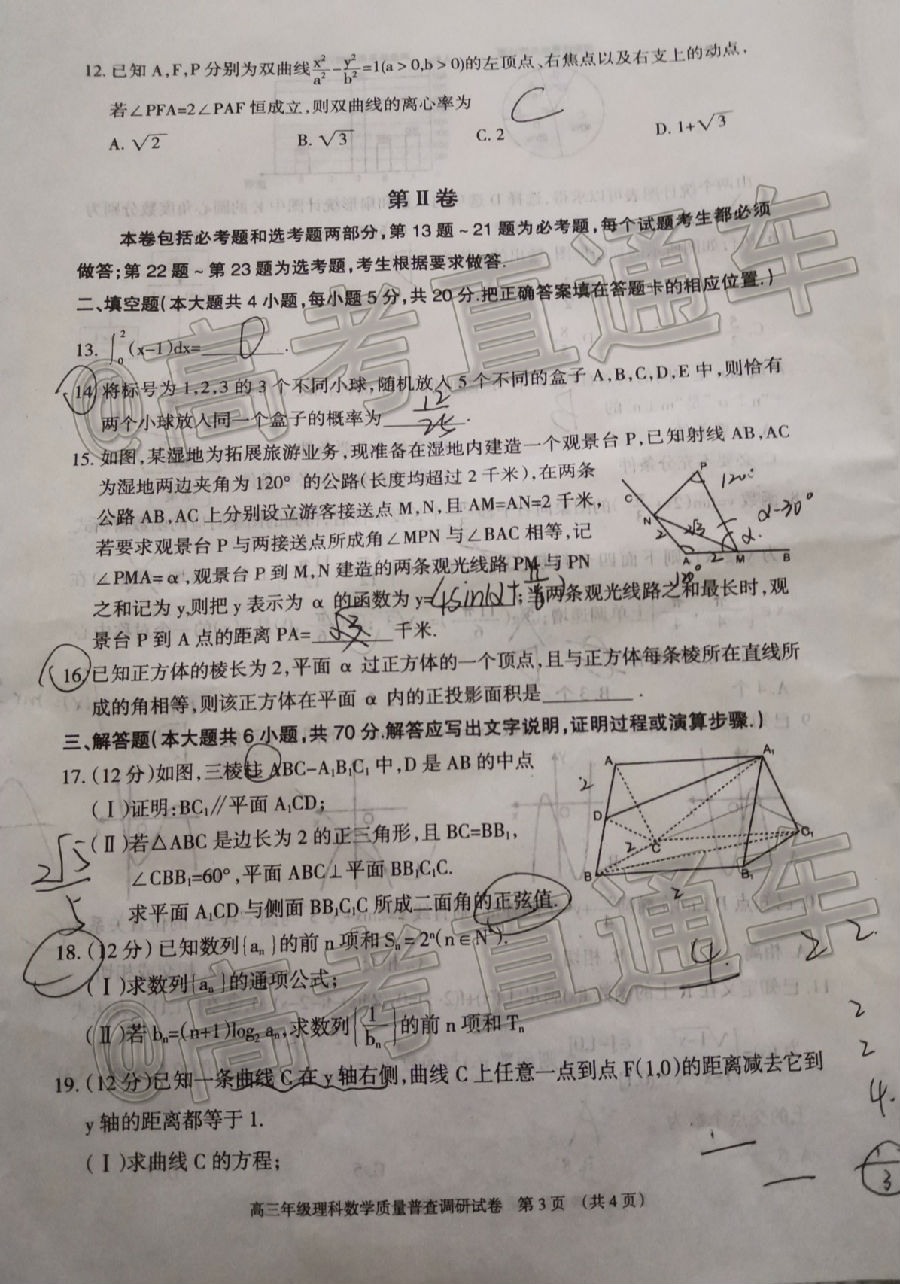 12. 已知 A,F,P 分别为双曲线x²/a²-y²/b²=1(a>0,b>0)的左顶点、右焦点以及右支上的动点,
若∠PFA=2∠PAF 恒成立,则双曲线的离心率为 C
A. √2 B. √3 C. 2 D. 1+√3
第Ⅱ卷
本卷包括必考题和选考题两部分,第 13 题~21 题为必考题,每个试题考生都必须
做答;第 22 题~第 23 题为选考题,考生根据要求做答.
二、填空题(本大题共 4 小题,每小题 5 分,共 20 分.把正确答案填在答题卡的相应位置.)
13. ∫₀²(x-1)dx= 0 .
14. 将标号为 1,2,3 的 3 个不同小球,随机放入 5 个不同的盒子 A,B,C,D,E 中,则恰有
两个小球放入同一个盒子的概率为 12/25 .
15. 如图,某湿地为拓展旅游业务,现准备在湿地内建造一个观景台 P,已知射线 AB,AC
为湿地两边夹角为 120° 的公路(长度均超过 2 千米),在两条
公路 AB,AC 上分别设立游客接送点 M,N,且 AM=AN=2 千米,
若要求观景台 P 与两接送点所成角∠MPN 与∠BAC 相等,记
∠PMA=α,观景台 P 到 M,N 建造的两条观光线路 PM 与 PN
之和记为 y,则把 y 表示为 α 的函数为 y= ;当两条观光线路之和最长时,观
景台 P 到 A 点的距离 PA= 千米.
P 120° C N 2 2√3 α-30° α. A 2 M B
16. 已知正方体的棱长为 2,平面 α 过正方体的一个顶点,且与正方体每条棱所在直线所
成的角相等,则该正方体在平面 α 内的正投影面积是 .
三、解答题(本大题共 6 小题,共 70 分.解答应写出文字说明,证明过程或演算步骤.)
17. (12 分)如图,三棱柱 ABC-A₁B₁C₁ 中,D 是 AB 的中点
(Ⅰ)证明:BC₁∥平面 A₁CD;
(Ⅱ)若△ABC 是边长为 2 的正三角形,且 BC=BB₁,
∠CBB₁=60°,平面 ABC⊥平面 BB₁C₁C.
求平面 A₁CD 与侧面 BB₁C₁C 所成二面角的正弦值.
A A₁ 2 D 2 C C₁ B B₁ 2
2√5
5
18. (12 分) 已知数列{aₙ}的前 n 项和 Sₙ=2ⁿ(n∈N*).
4. 2 2.
(Ⅰ)求数列{aₙ}的通项公式;
(Ⅱ)若 bₙ=(n+1)log₂aₙ,求数列{1/bₙ}的前 n 项和 Tₙ
2
2
19. (12 分)已知一条曲线 C 在 y 轴右侧,曲线 C 上任意一点到点 F(1,0)的距离减去它到
4.
y 轴的距离都等于 1.
(Ⅰ)求曲线 C 的方程;
1/3
高三年级理科数学质量普查调研试卷 第 3 页 (共 4 页)
@高考直通车
@高考直通车